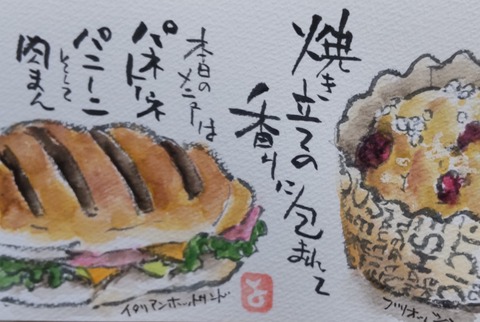 焼き立ての
香りに包まれて
本日の
メニューは
パネトーネ
パニーニ
そして
肉まん
イタリアンホットサンド